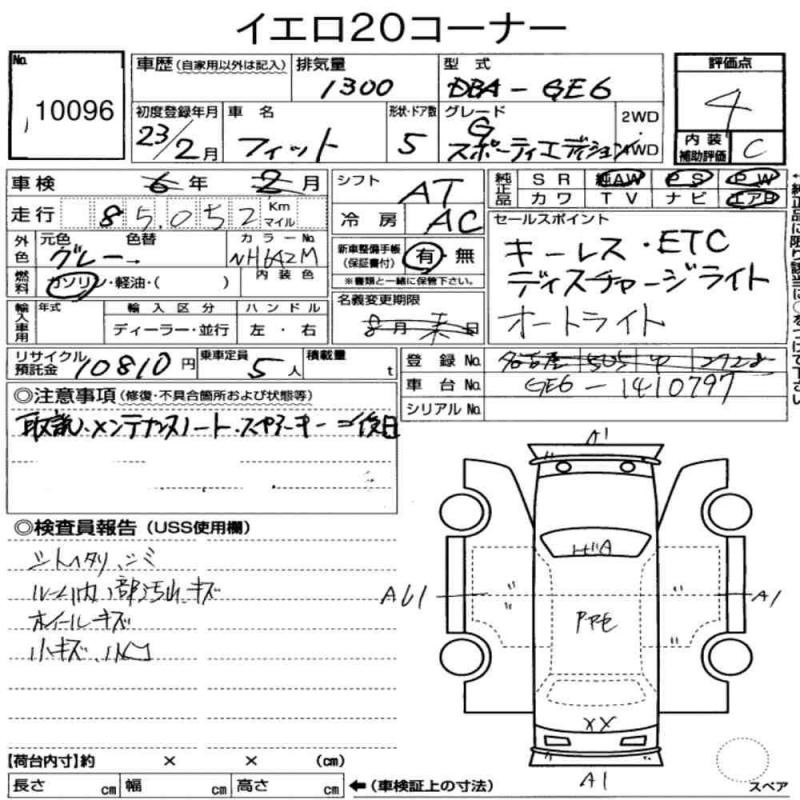 イエロ20コーナー
No. 10096
車歴（自家用以外は記入） 排気量 1300 型式 DBA-GE6 評価点 4
初度登録年月 23/2月 車名 フィット 形状・ドア数 5 グレード G スポーティエディション 2WD 4WD 内装補助評価 C
車検 6年 2月 シフト AT 純正品 SR 純AW PS PW
カワ TV ナビ エアB
走行 85,052 Km マイル 冷房 AC
外色 元色 グレー 色替 カラーNo. NH642M
内装色
燃料 ガソリン・軽油・( )
新車整備手帳（保証書付） 有・無
※書類と一緒に保管下さい。
セールスポイント
キーレス・ETC
ディスチャージライト
オートライト
輸入車用 年式 輸入区分 ハンドル
ディーラー・並行 左・右
名義変更期限
8月末日
リサイクル預託金 10810円 乗車定員 5人 積載量 t
登録No. 名古屋 505
車台No. GE6-1410797
シリアルNo.
◎注意事項（修復・不具合箇所および状態等）
取説、メンテナンスノート・スペアーキー 後日
◎検査員報告（USS使用欄）
シートヘタリ、シミ
ルーム内 内部汚れ、キズ
ホイールキズ
小キズ、小凹
A1
A1
A1
XX
A1
【荷台内寸】約 × × (cm)
長さ cm 幅 cm 高さ cm ←（車検証上の寸法） スペア